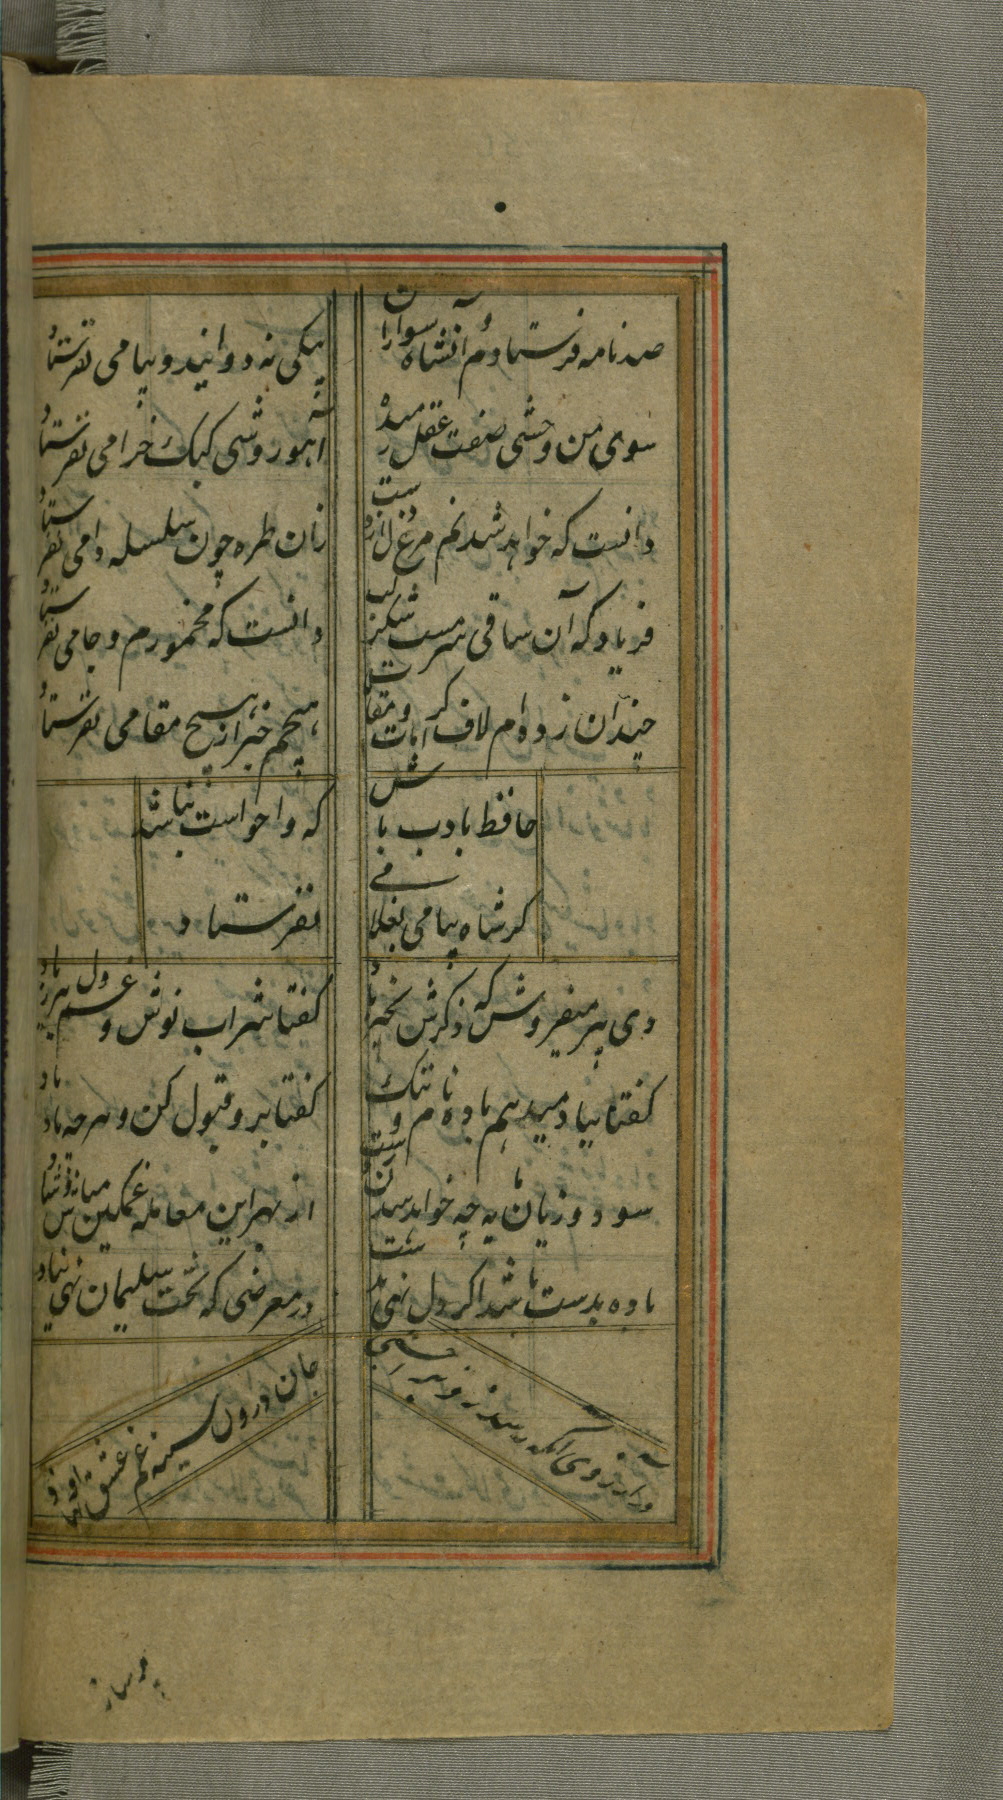 صد نامه فرستادم و آن شاه سواران
پیکی ندوانید و پیامی نفرستاد
سوی من وحشی صفت عقل رمیده
آهو روشی کبک خرامی نفرستاد
دانست که خواهد شدنم مرغ دل از دست
زان طره چون سلسله دامی نفرستاد
فریاد که آن ساقی سرمست شکر لب
دانست که مخمورم و جامی نفرستاد
چندان زده‌ام لاف کرامات و مقامات
هیچم خبر از هیچ مقامی نفرستاد
حافظ بادب باش
که واخواست نباشد
کر شاه پیامی بغلامی
نفرستاد
دی پیر میفروش که ذکرش بخیر باد
کفتا شراب نوش و غم دل ببر ز یاد
کفتم بباد میدهدم باده نام و ننک
کفتا برو قبول کن و هرچه باد باد
سود و زیان و مایه چه خواهد شدن ز دست
از بهر این معامله غمکین مباش و شاد
بادت بدست باشد اکر دل نهی بهیچ
در معرضی که تخت سلیمان نهی بباد
در آرزوی آنکه رسد
جان درون سینه غم عشق او